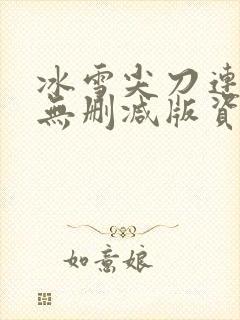 冰雪尖刀連
無刪減版資
如意娘